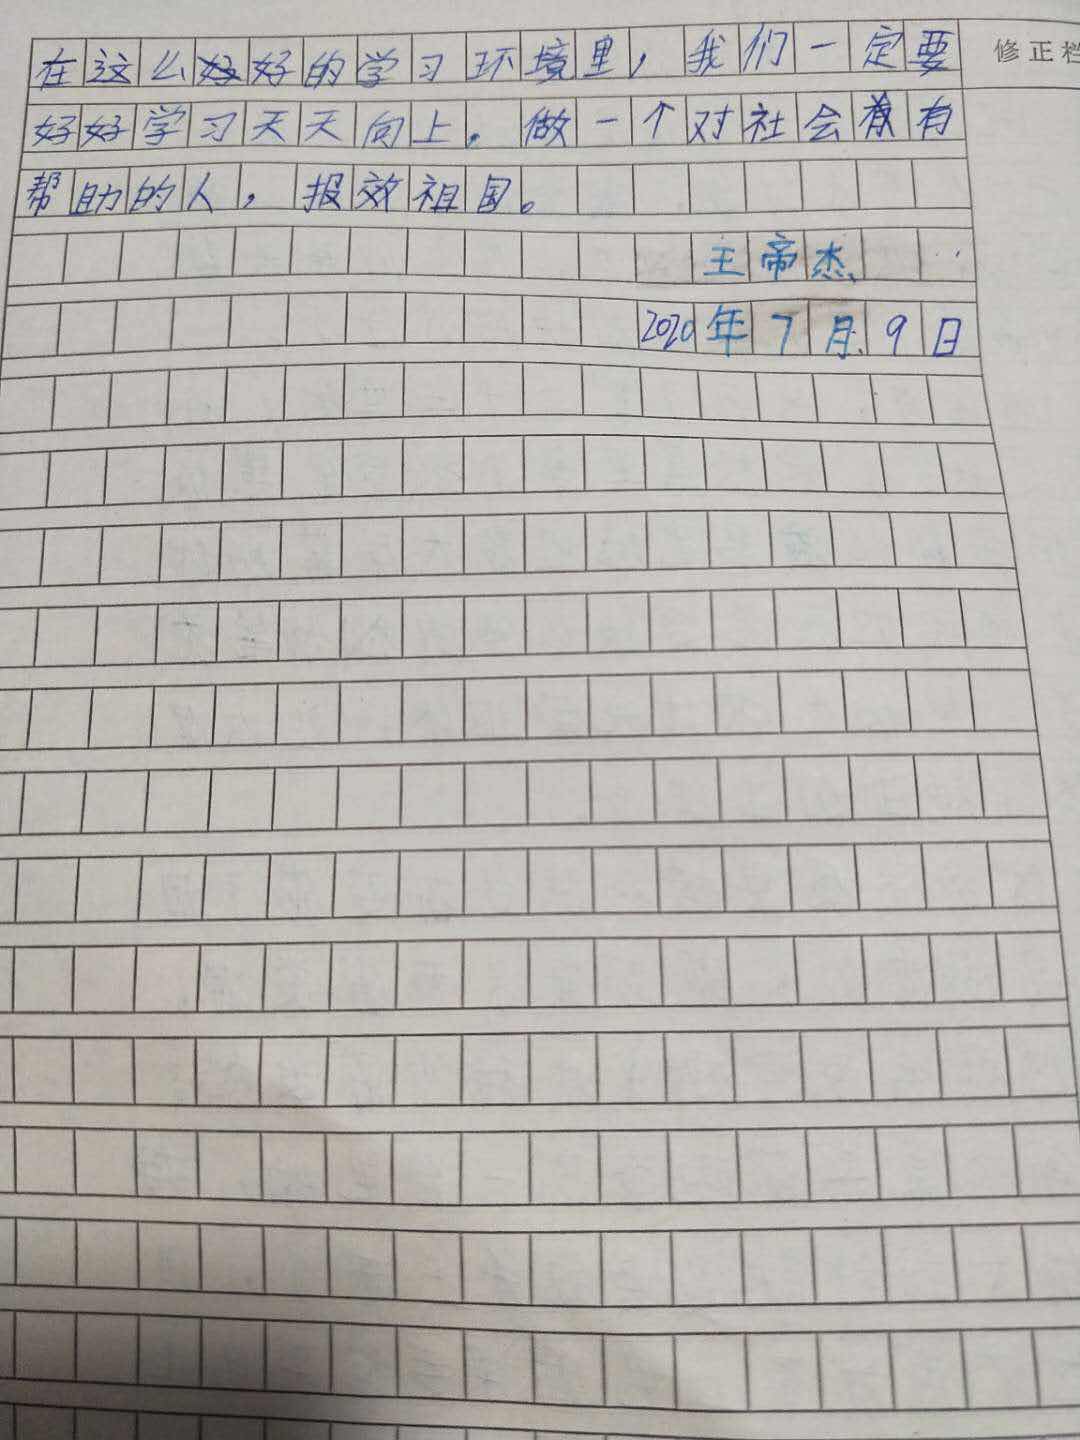 在这么好的学习环境里，我们一定要
修正栏
好好学习天天向上。做一个对社会有
帮助的人，报效祖国。
王帝杰
2020年7月9日